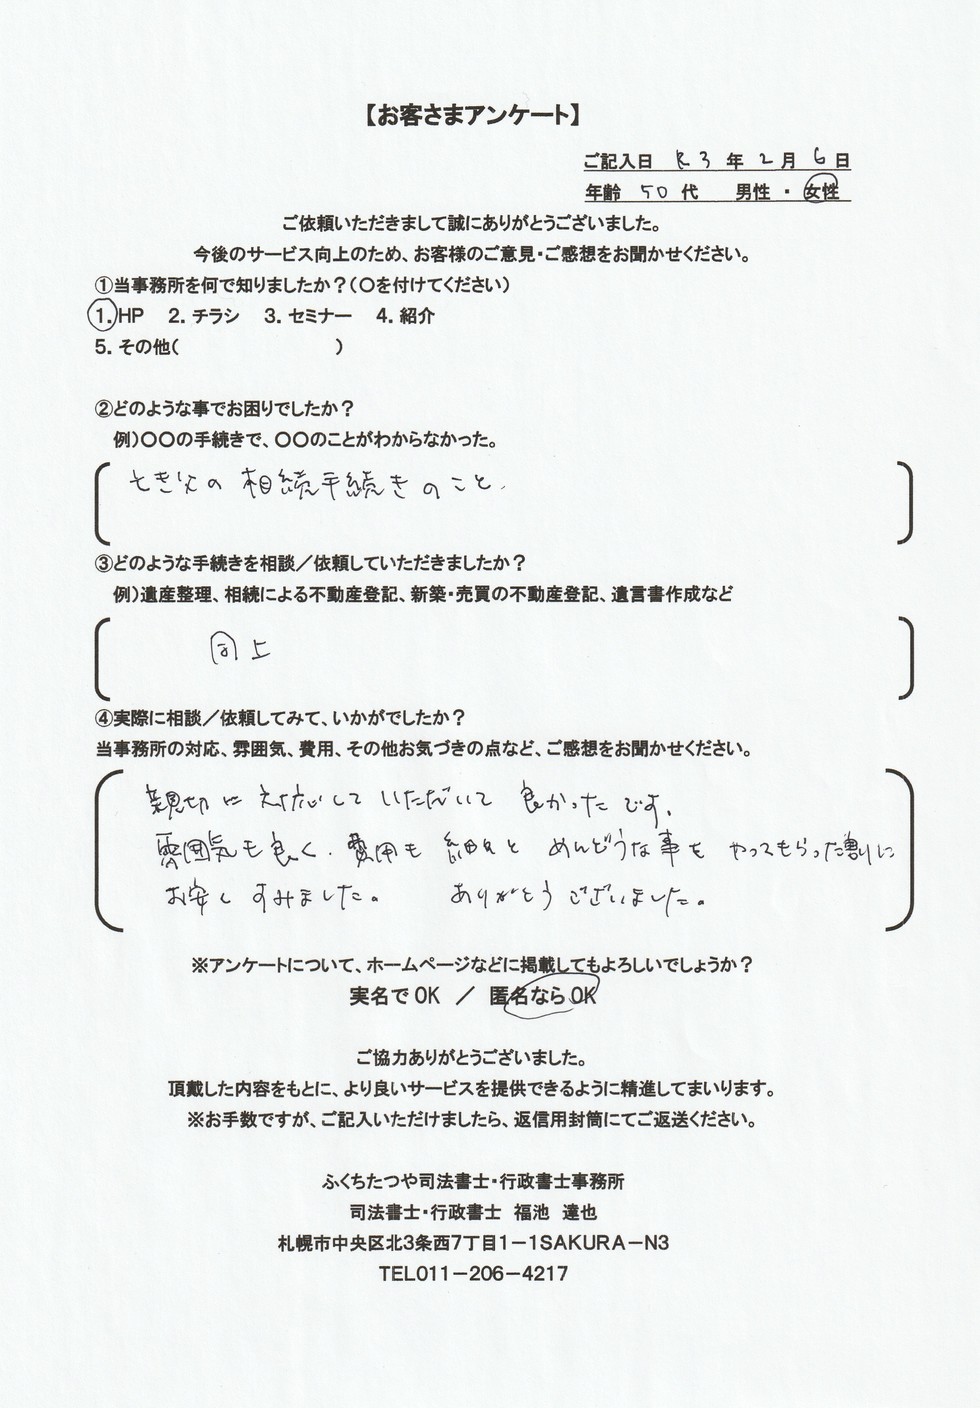 【お客さまアンケート】
ご記入日 R3 年 2 月 6 日
年齢 50 代 男性 ・ 女性
ご依頼いただきまして誠にありがとうございました。
今後のサービス向上のため、お客様のご意見・ご感想をお聞かせください。
①当事務所を何で知りましたか？（○を付けてください）
1. HP 2. チラシ 3. セミナー 4. 紹介
5. その他（ ）
②どのような事でお困りでしたか？
例）○○の手続きで、○○のことがわからなかった。
亡き父の 相続手続きのこと、
③どのような手続きを相談／依頼していただきましたか？
例）遺産整理、相続による不動産登記、新築・売買の不動産登記、遺言書作成など
同上
④実際に相談／依頼してみて、いかがでしたか？
当事務所の対応、雰囲気、費用、その他お気づきの点など、ご感想をお聞かせください。
親切に対応して いただいて 良かったです。
雰囲気も良く、費用も 細々と めんどうな事を やってもらった割りに
お安く すみました。 ありがとうございました。
※アンケートについて、ホームページなどに掲載してもよろしいでしょうか？
実名でOK ／ 匿名ならOK
ご協力ありがとうございました。
頂戴した内容をもとに、より良いサービスを提供できるように精進してまいります。
※お手数ですが、ご記入いただけましたら、返信用封筒にてご返送ください。
ふくちたつや司法書士・行政書士事務所
司法書士・行政書士 福池 達也
札幌市中央区北3条西7丁目1－1SAKURA－N3
TEL011－206－4217